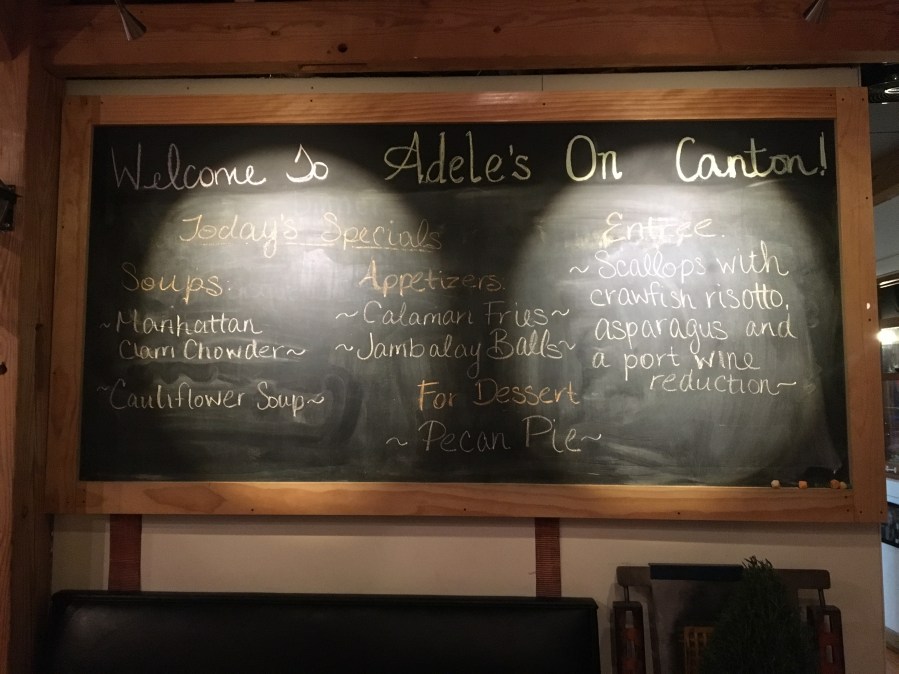 Welcome To Adele's On Canton!
Today's Specials
Soups:
~Manhattan
Clam Chowder~
~Cauliflower Soup~
Appetizers:
~Calamari Fries~
~Jambalay Balls~
For Dessert
~Pecan Pie~
Entree:
~Scallops with
crawfish risotto,
asparagus and
a port wine
reduction~